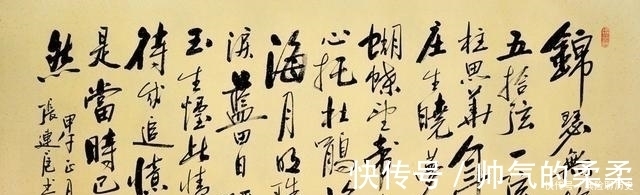 錦瑟無
五拾弦一
柱思華年
庄生曉夢
蝴蝶望春
心托杜鵑
海月明珠
淚藍田日
玉生煙此情
待成追憶
是當時已
然
甲午正月
張連
快传号 / 帅气的柔柔